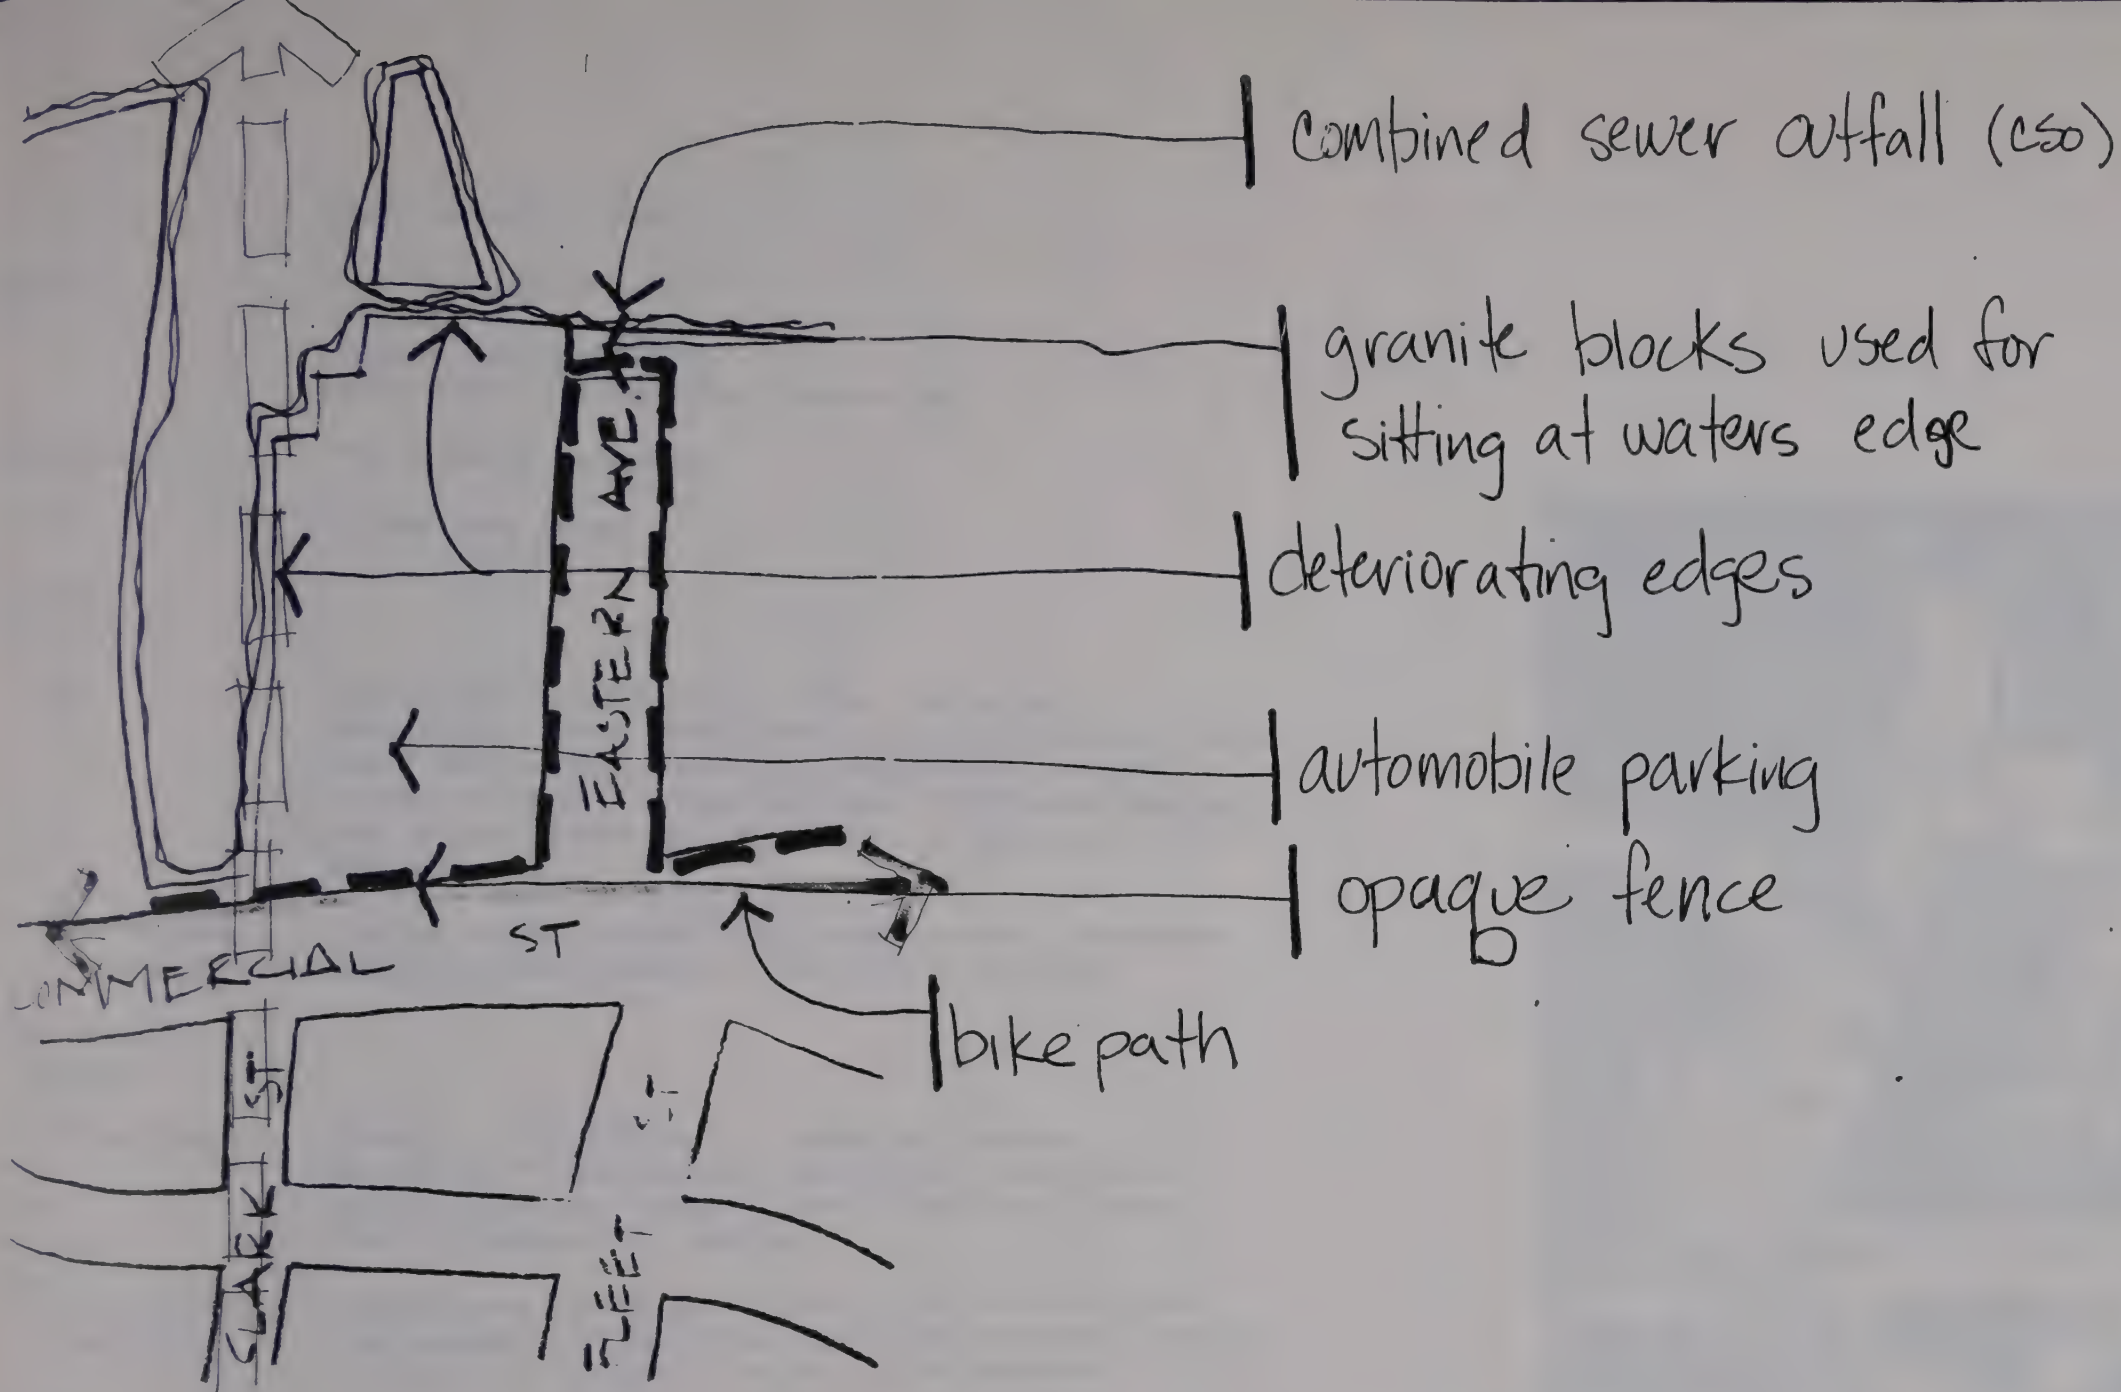 combined sewer outfall (cso)
granite blocks used for
sitting at waters edge
deteriorating edges
automobile parking
opaque fence
bike path
EASTERN AVE.
COMMERCIAL ST
CLARK ST
FLEET ST